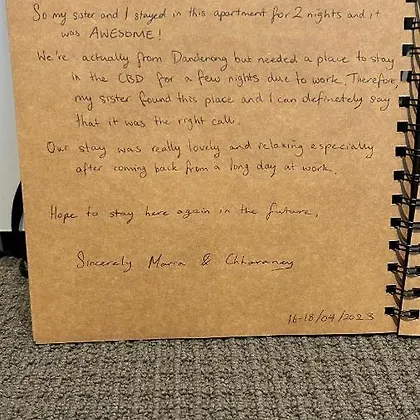 So my sister and I stayed in this apartment for 2 nights and it
was AWESOME!
We're actually from Dandenong but needed a place to stay
in the CBD for a few nights due to work. Therefore,
my sister found this place and I can definetely say
that it was the right call.
Our stay was really lovely and relaxing especially
after coming back from a long day at work.
Hope to stay here again in the future.
Sincerely Maria &
16-18/04/2023